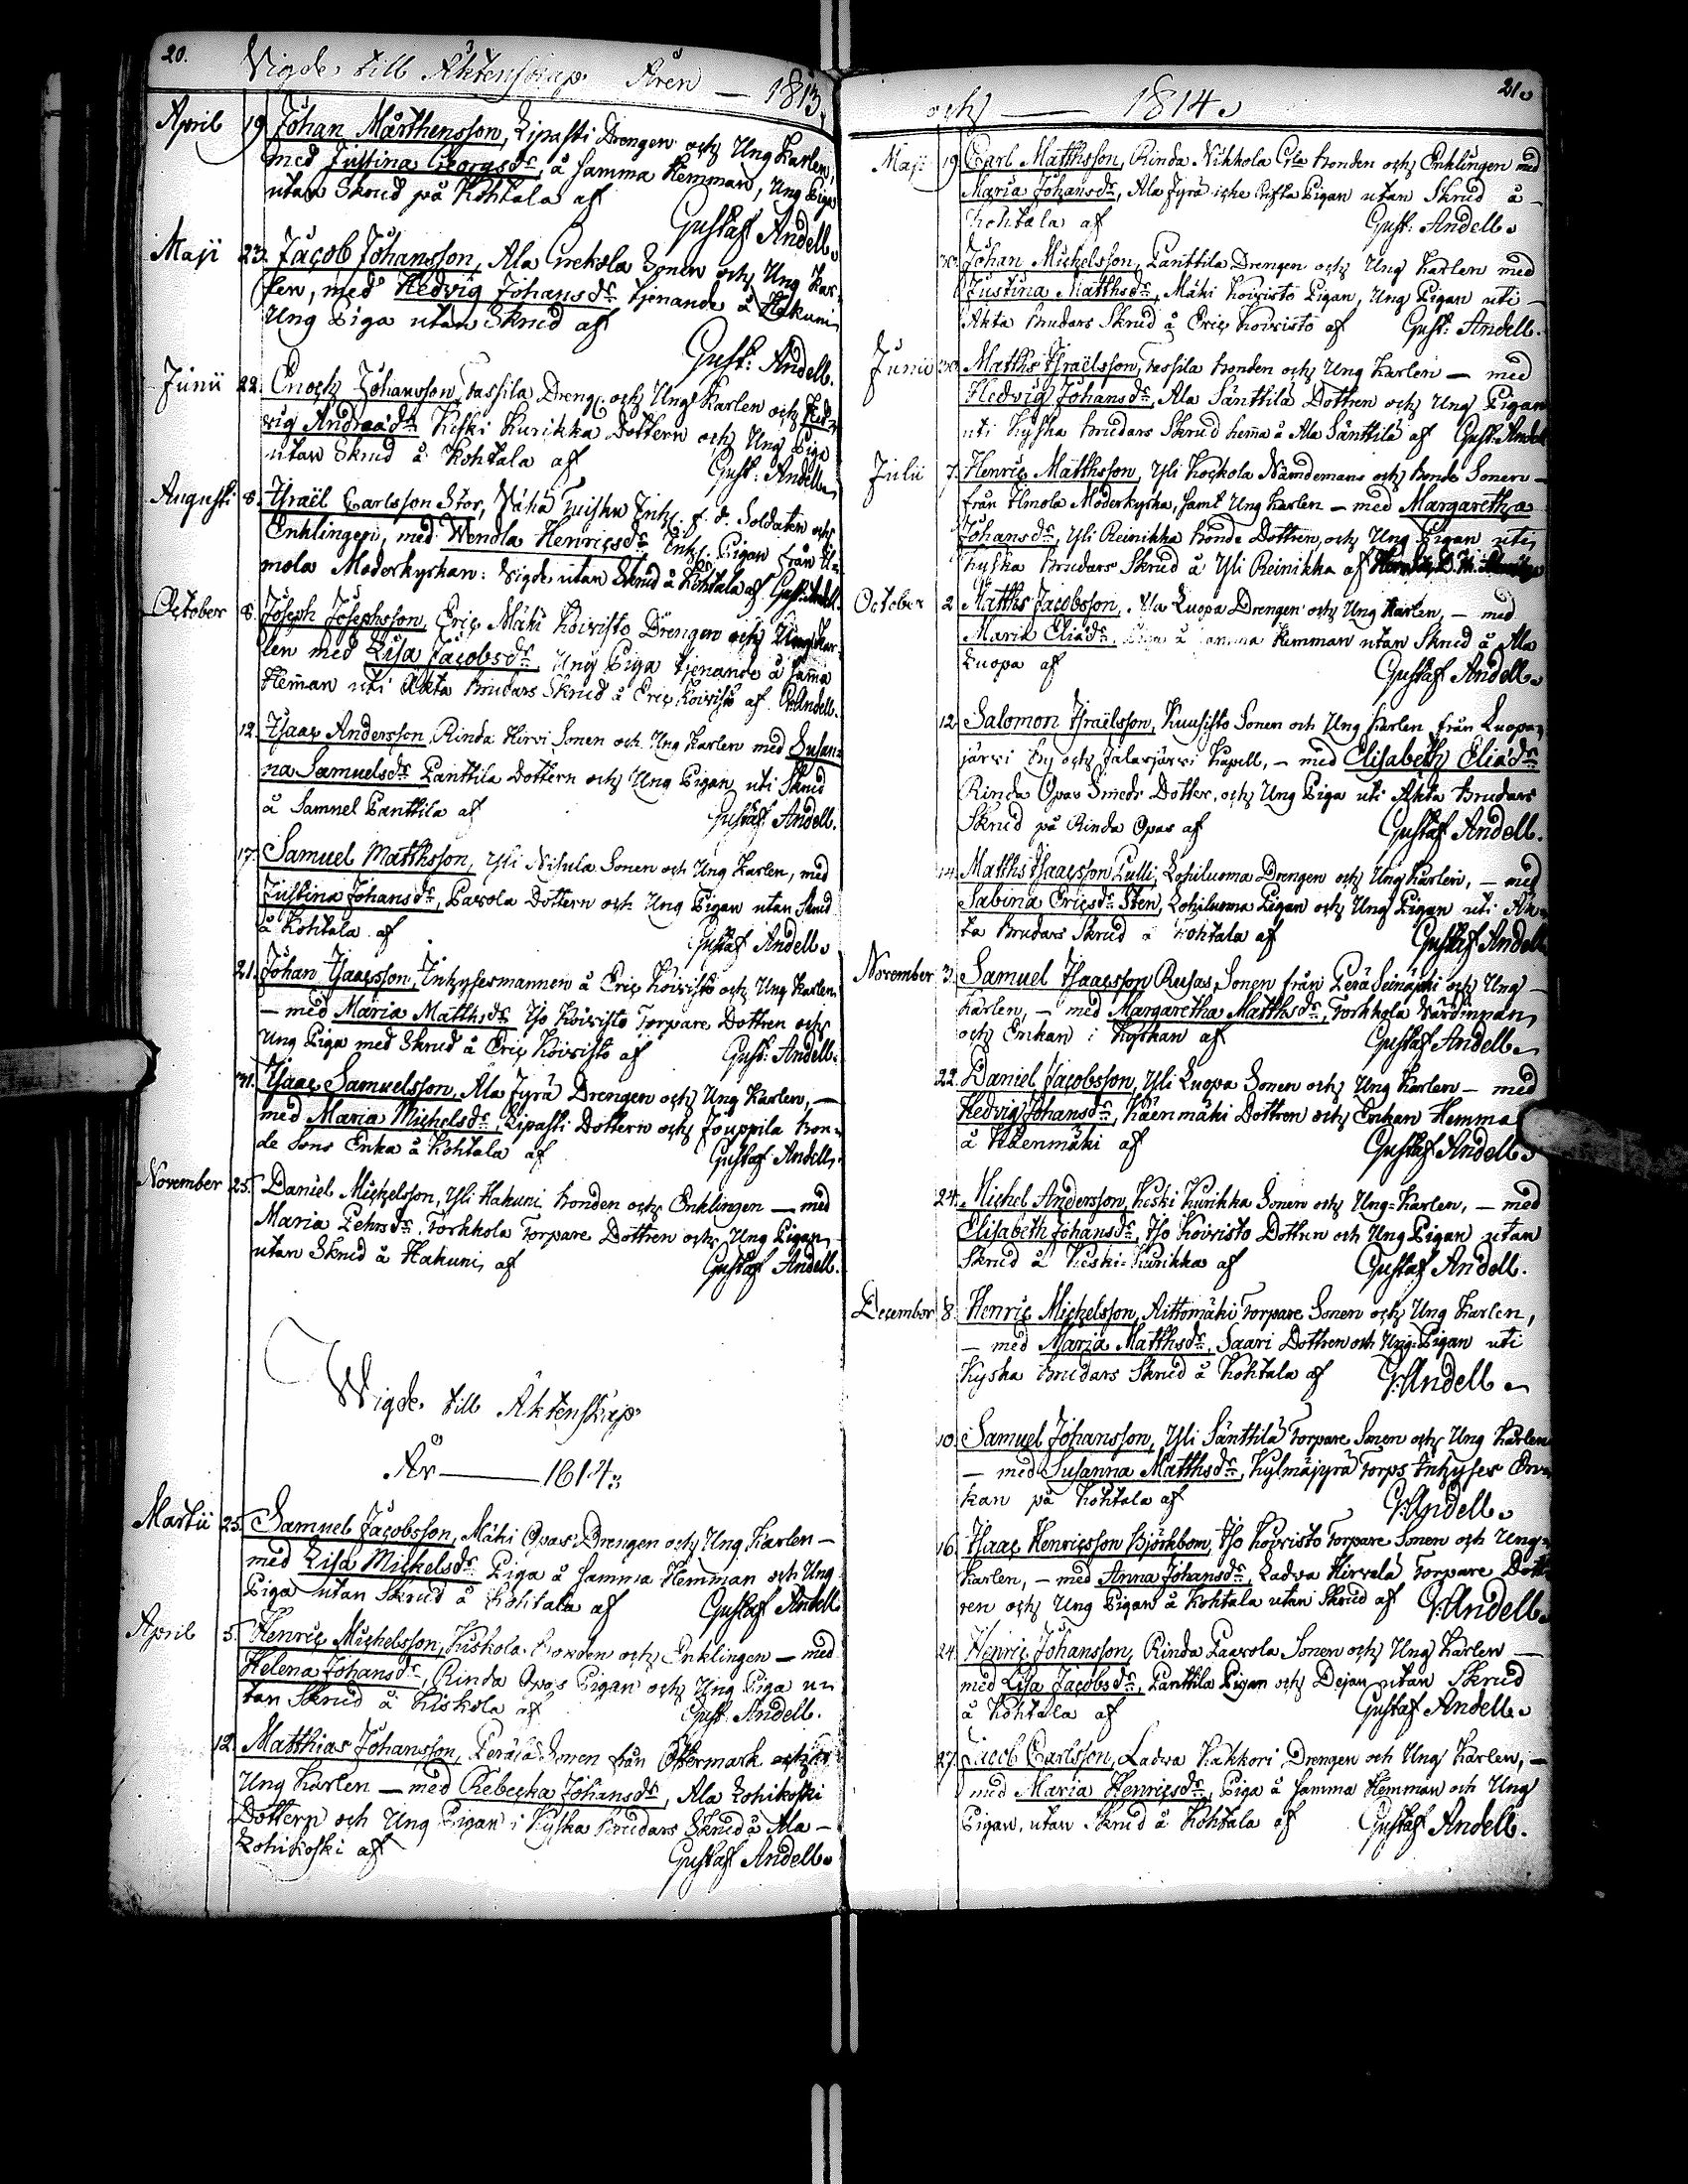 20.
Vigde till Äktenskap Åren — 1813.
April 19. Johan Mårthensson, Lipasti Drengen och Ung Karlen,
med Justina Georgsdr, å samma Hemman, Ung Piga
utan Skrud på Kohtala af
Gustaf Andell.
Maji 23. Jacob Johansson, Ala Sonen och Ung Kar-
len, med Hedvig Johansdr tjenande å Hakuni
Ung Piga utan Skrud af
Gust: Andell.
Junii 22. Enoch Johansson, Tassila Dreng. och Ung Karlen och Hed-
vig Andreædr Keski Kurikka Dottern och Ung Piga
utan Skrud å Kohtala af
Gust: Andell.
Augusti 8. Israël Carlsson Stor, Tuisku Inh. f. d. Soldaten och
Enklingen, med Wendla Henricsdr Inh. Pigan från Il-
mola Moderkyrkan: Vigde utan Skrud å Kohtala af Gust: Andel.
October 8. Joseph Josephsson, Eric Mäki Koivisto Drengen och Ung Kar-
len med Lisa Jacobsdr, Ung Piga tjenande å sama
Heman uti Äkta Brudars Skrud å Eric Koivisto af G: Andell.
12. Isaac Andersson Rinda Hirvi Sonen och Ung Karlen med Susan-
na Samuelsdr Panttila Dottern och Ung Pigan uti Skrud
å Samuel Panttila af
Gustaf Andell.
17. Samuel Matthsson, Yli Nisula Sonen och Ung Karlen, med
Justina Johansdr, Pavola Dottern och Ung Pigan utan Skrud
å Kohtala af
Gustaf Andell.
21. Johan Isaacsson, Inhysesmannen å Eric Koivisto och Ung Karlen
— med Maria Matthsdr Iso Koivisto Torpare Dottren och
Ung Piga med Skrud å Eric Koivisto af Gust: Andell.
31. Isaac Samuelsson, Ala Jyrä Drengen och Ung Karlen, —
med Maria Michelsdr, Lipasti Dottern och Jouppila Bon-
de Sons Enka å Kohtala af
Gustaf Andell.
November 25. Daniel Michelsson, Yli Hakuni Bonden och Enklingen — med
Maria Pehrsdr, Torkkola Torpare Dottren och Ung Pigan
utan Skrud å Hakuni af Gustaf Andell.
Wigde till Äktenskap
År — 1814.
Martii 25. Samuel Jacobsson, Mäki Opas Drengen och Ung Karlen —
med Lisa Mickelsdr Piga å samma Hemman och Ung
Piga utan Skrud å Kohtala af Gustaf Andell.
April 5. Henric Michelsson, Kiskola Bonden och Enklingen — med
Helena Johansdr, Rinda Opas Pigan och Ung Piga u-
tan Skrud å Kiskola af Gust: Andell.
12. Matthias Johansson, Perälä Sonen från Östermark och
Ung Karlen — med Rebecka Johansdr, Ala Lohikoski
Dottern och Ung Pigan i Kyska Brudars Skrud å Ala —
Lohikoski af
Gustaf Andell.
21.
och — 1814.
Maji 19. Carl Matthsson, Rinda Nikkola Bonden och Enklingen med
Maria Johansdr, Ala Jyrä icke Pigan utan Skrud å —
Kohtala af Gust: Andell.
30. Johan Michelsson, Panttila Drengen och Ung Karlen med
Justina Matthsdr, Mäki Koivisto Pigan, Ung Pigan uti —
Äkta Brudars Skrud å Eric Koivisto af Gust: Andell.
Junii 30. Matths Israëlsson, Bonden och Ung Karlen — med
Hedvig Johansdr, Ala Sänttilä Dottren och Ung Pigan
uti Kyska Brudars Skrud hema å Ala Sänttilä af Gust: Andell
Julii 7. Henric Matthsson, Yli Kockola Nämdemans och Bonde Sonen —
från Ilmola Moderkyrka, samt Ung Karlen — med Margaretha
Johansdr, Yli Reinikka Bonde Dottren, och Ung Pigan uti
Kyska Brudars Skrud å Yli Reinikka af
October 2. Matths Jacobsson, Ala Luopa Drengen och Ung Karlen, — med
Maria Eliædr. å samma Hemman utan Skrud å Ala
Luopa af
Gustaf Andell.
12. Salomon Israëlsson, Kuusisto Sonen och Ung Karlen från Luopa-
järvi By och Jalasjärvi Kapell, — med Elisabeth Eliædr
Rinda Opas Smeds Dotter, och Ung Piga uti Äkta Brudars
Skrud på Rinda Opas af
Gustaf Andell.
14. Matths Isaacsson Lulli, Lohiluoma Drengen och Ung Karlen, — med
Sabina Ericsdr Sten, Lohiluoma Pigan och Ung Pigan uti Äk-
ta Brudars Skrud å Kohtala af
Gustaf Andell
November 3. Samuel Isaacsson Rusas, Sonen från Perä Seinäjoki och Ung —
Karlen, — med Margaretha Matthsdr, Torkkola Värdinnan
och Enkan i Kyrkan af
Gustaf Andell.
22. Daniel Jacobsson, Yli Luopa Sonen och Ung Karlen — med
Hedvig Johansdr, Käenmäki Dottren och Enkan Hemma
å Käenmäki af
Gustaf Andell.
24. Michel Andersson, Keski Kurikka Sonen och Ung-Karlen, — med
Elisabeth Johansdr, Iso Koivisto Dottren och Ung Pigan utan
Skrud å Keski-Kurikka af
Gustaf Andell.
December 8. Henric Michelsson, Aittomäki Torpare Sonen och Ung Karlen,
— med Maria Matthsdr, Saari Dottren och Ung-Pigan uti
Kyska Brudars Skrud å Kohtala af
G: Andell.
10. Samuel Johansson, Yli Sänttilä Torpare Sonen och Ung Karlen
— med Susanna Matthsdr, Kylmäjyrä Torps Inhyses
kan på Kohtala af
G: Andell.
16. Isaac Henricsson Björkbom, Iso Koivisto Torpare Sonen och Ung-
Karlen, — med Anna Johansdr, Ladva Hirvelä Torpare Dott-
ren och Ung Pigan å Kohtala utan Skrud af G: Andell.
24. Henric Johansson, Rinda Paavola Sonen och Ung Karlen —
med Lisa Jacobsdr, Panttila Pigan och Dejan utan Skrud
å Kohtala af
Gustaf Andell.
27. Jacob Carlsson, Ladva Kakkori Drengen och Ung Karlen, —
med Maria Henricsdr, Piga å samma Hemman och Ung
Pigan, utan Skrud å Kohtala af Gustaf Andell.